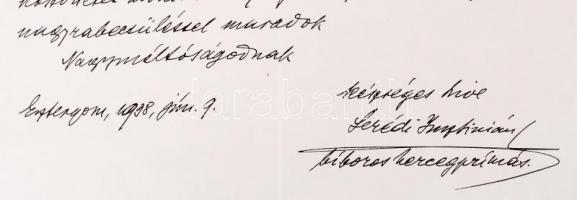 nagyrabecsüléssel maradok
Nagyméltóságodnak
Esztergom, 1938, jún. 9.
készséges híve
Serédi Jusztinián
bíboros hercegprímás.